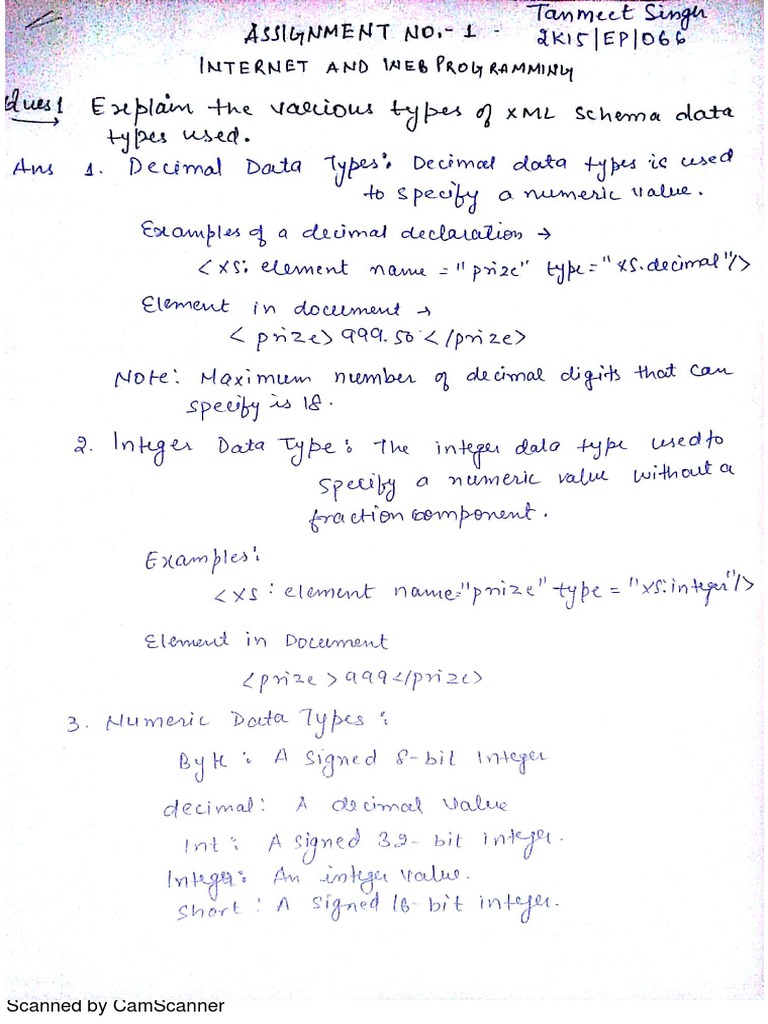 Tanmeet Singh
ASSIGNMENT NO.- 1 - 2K15/EP/066
INTERNET AND WEB PROGRAMMING
Ques1 Explain the various types of XML schema data
types used.
Ans 1. Decimal Data Types: Decimal data types is used
to specify a numeric value.
Examples of a decimal declaration →
<xs: element name = "prize" type = "xs.decimal"/>
Element in document →
<prize> 999.50 </prize>
Note: Maximum number of decimal digits that can
specify is 18.
2. Integer Data Type: The integer data type used to
specify a numeric value without a
fraction component.
Examples:
<xs : element name="prize" type = "xs:integer"/>
Element in Document
<prize>999</prize>
3. Numeric Data Types :
Byte : A signed 8-bit integer
decimal: A decimal value
Int : A signed 32-bit integer.
Integer: An integer value.
Short : A signed 16-bit integer.
Scanned by CamScanner